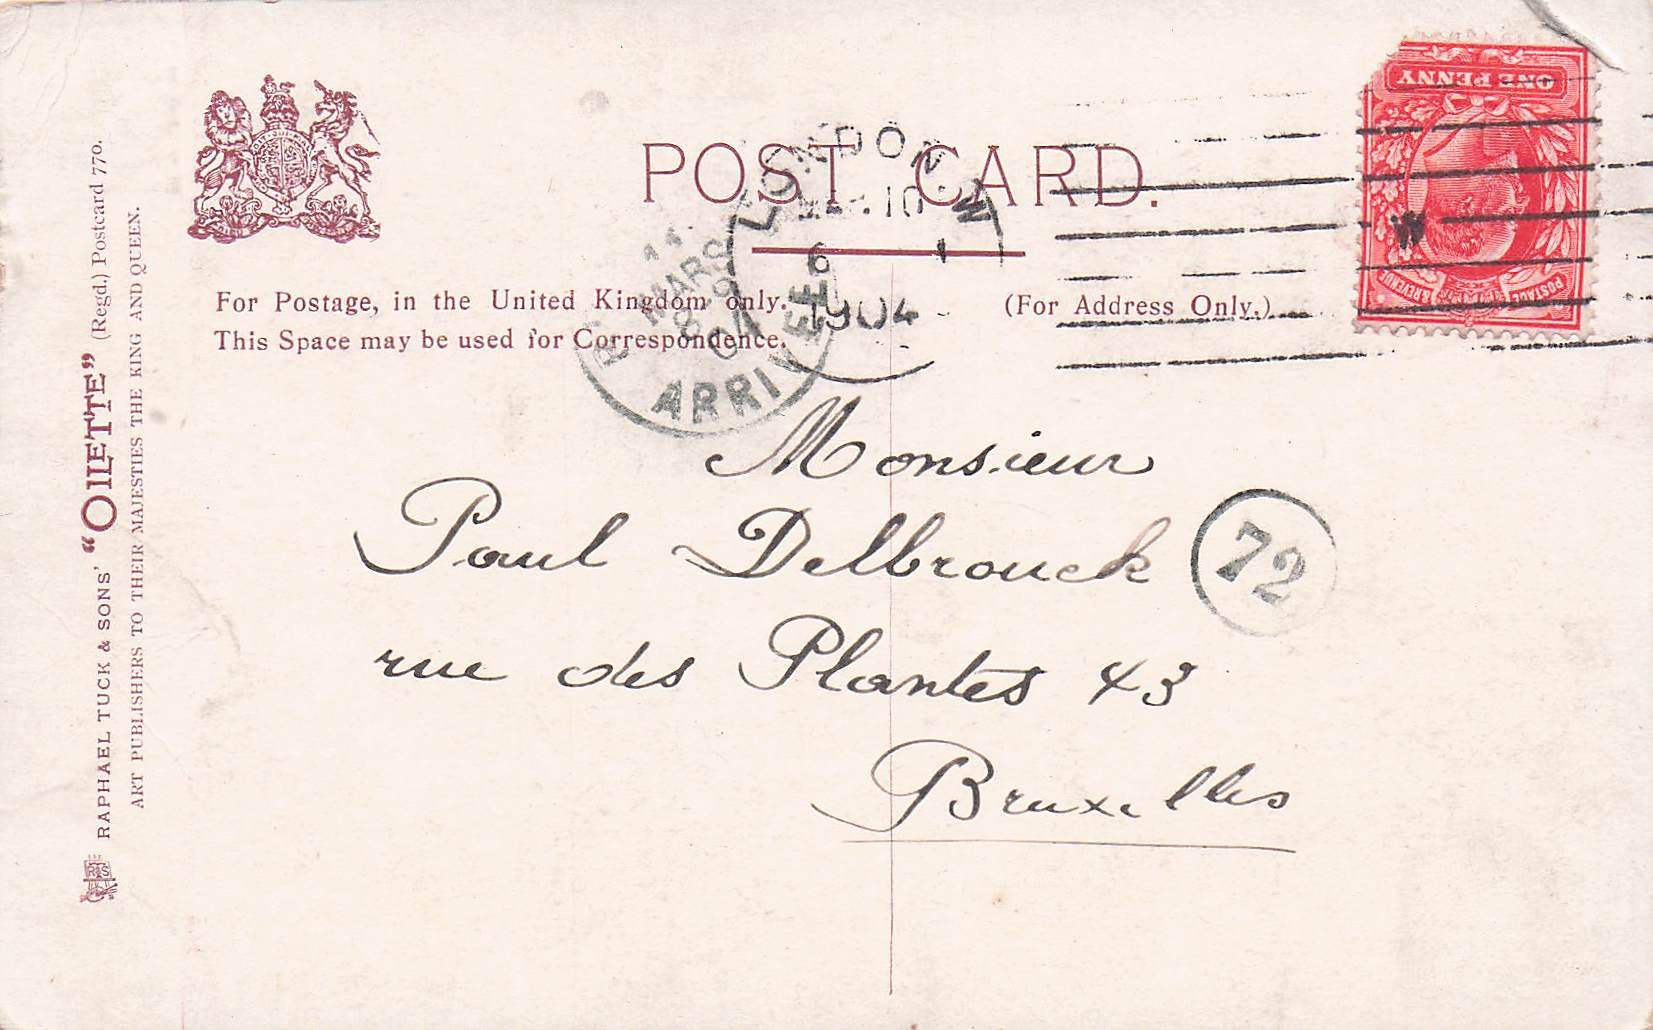 POST CARD.
For Postage, in the United Kingdom only.
This Space may be used for Correspondence.
(For Address Only.)
RAPHAEL TUCK & SONS' “OILETTE” (Regd.) Postcard 770.
ART PUBLISHERS TO THEIR MAJESTIES THE KING AND QUEEN.
LONDON W
6
1904
MARS
04
ARRIVEE
ONE PENNY
POSTAGE & REVENUE
W
Monsieur
Paul Delbrouck
72
rue des Plantes 43
Bruxelles